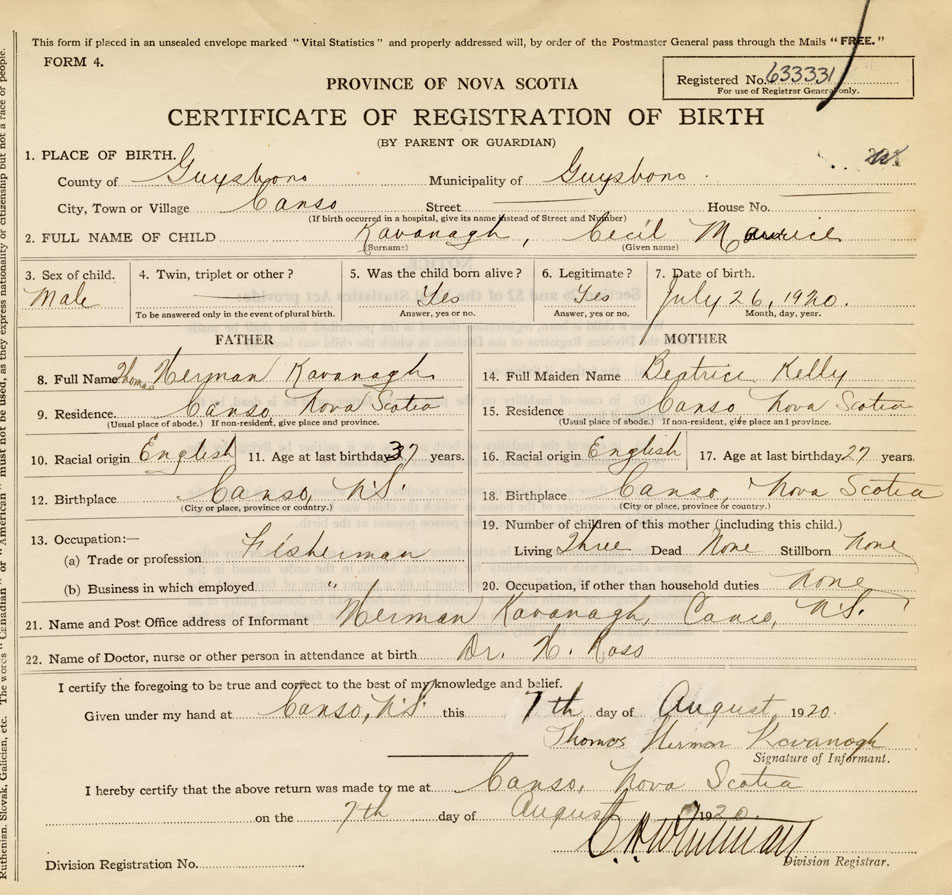 This form if placed in an unsealed envelope marked "Vital Statistics" and properly addressed will, by order of the Postmaster General pass through the Mails "FREE."
FORM 4.
Registered No. 633331
For use of Registrar General only.
PROVINCE OF NOVA SCOTIA
CERTIFICATE OF REGISTRATION OF BIRTH
(BY PARENT OR GUARDIAN)
1. PLACE OF BIRTH.
County of Guysboro Municipality of Guysboro
City, Town or Village Canso Street House No.
(If birth occurred in a hospital, give its name instead of Street and Number)
2. FULL NAME OF CHILD Kavanagh, Cecil Maurice
(Surname) (Given name)
3. Sex of child. 4. Twin, triplet or other? 5. Was the child born alive? 6. Legitimate? 7. Date of birth.
Male Yes Yes July 26, 1920.
To be answered only in the event of plural birth. Answer, yes or no. Answer, yes or no. Month, day, year.
FATHER
8. Full Name Thomas Herman Kavanagh
9. Residence. Canso, Nova Scotia
(Usual place of abode.) If non-resident, give place and province.
10. Racial origin English 11. Age at last birthday 37 years.
12. Birthplace Canso, N.S.
(City or place, province or country.)
13. Occupation:—
(a) Trade or profession Fisherman
(b) Business in which employed "
MOTHER
14. Full Maiden Name Beatrice Kelly
15. Residence Canso Nova Scotia
(Usual place of abode.) If non-resident, give place and province.
16. Racial origin English 17. Age at last birthday 27 years.
18. Birthplace Canso, Nova Scotia
(City or place, province or country.)
19. Number of children of this mother (including this child.)
Living Three Dead None Stillborn None
20. Occupation, if other than household duties none
21. Name and Post Office address of Informant Herman Kavanagh, Canso, N.S.
22. Name of Doctor, nurse or other person in attendance at birth Dr. H. Ross
I certify the foregoing to be true and correct to the best of my knowledge and belief.
Given under my hand at Canso, N.S. this 7th day of August 1920.
Thomas Herman Kavanagh
Signature of Informant.
I hereby certify that the above return was made to me at Canso, Nova Scotia
on the 7th day of August 1920.
Division Registration No. Division Registrar.
Ruthenian, Slovak, Galician, etc. The words "Canadian" or "American" must not be used, as they express nationality or citizenship but not a race or people.